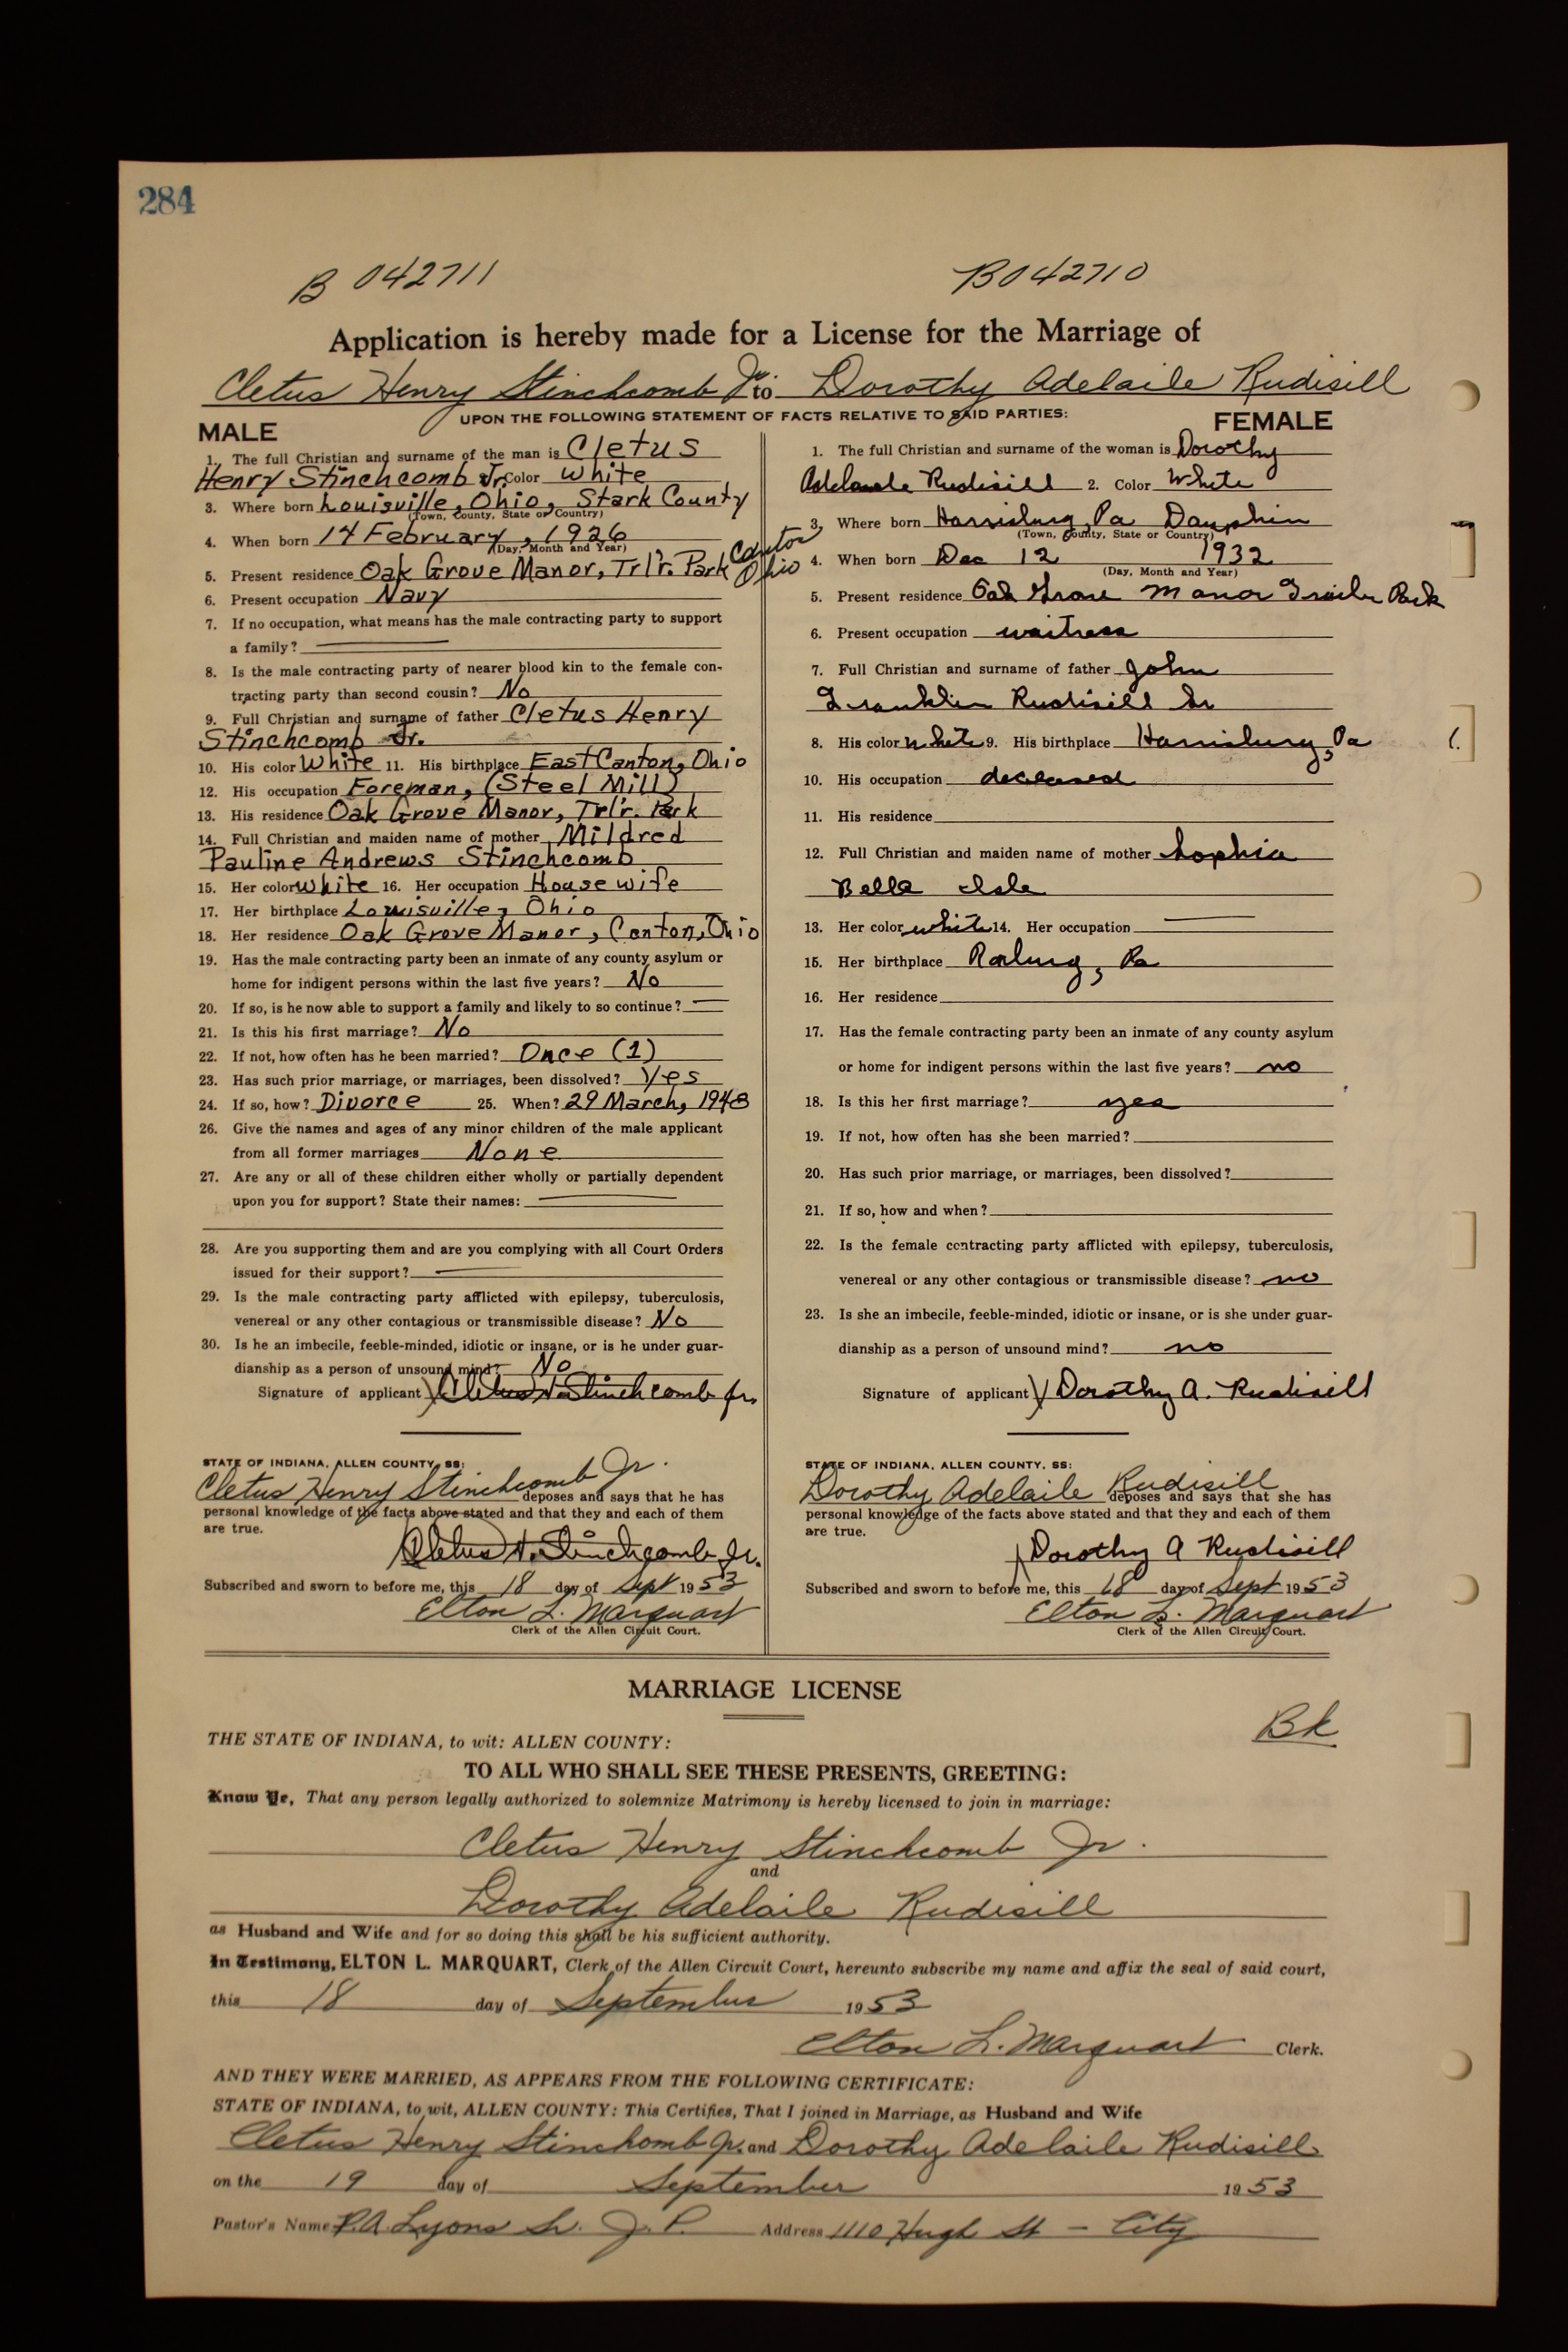 284
B 042711
B042710
Application is hereby made for a License for the Marriage of
Cletus Henry Stinchcomb Jr. to Dorothy Adelaile Rudisill
UPON THE FOLLOWING STATEMENT OF FACTS RELATIVE TO SAID PARTIES:
MALE
1. The full Christian and surname of the man is Cletus
Henry Stinchcomb Jr. Color White
3. Where born Louisville, Ohio, Stark County
(Town, County, State or Country)
4. When born 14 February, 1926
(Day, Month and Year)
5. Present residence Oak Grove Manor, Trl'r. Park Canton Ohio
6. Present occupation Navy
7. If no occupation, what means has the male contracting party to support
a family?
8. Is the male contracting party of nearer blood kin to the female con-
tracting party than second cousin? No
9. Full Christian and surname of father Cletus Henry
Stinchcomb Sr.
10. His color White 11. His birthplace East Canton, Ohio
12. His occupation Foreman, (Steel Mill)
13. His residence Oak Grove Manor, Trl'r. Park
14. Full Christian and maiden name of mother Mildred
Pauline Andrews Stinchcomb
15. Her color White 16. Her occupation Housewife
17. Her birthplace Louisville, Ohio
18. Her residence Oak Grove Manor, Canton, Ohio
19. Has the male contracting party been an inmate of any county asylum or
home for indigent persons within the last five years? No
20. If so, is he now able to support a family and likely to so continue?
21. Is this his first marriage? No
22. If not, how often has he been married? Once (1)
23. Has such prior marriage, or marriages, been dissolved? Yes
24. If so, how? Divorce 25. When? 29 March, 1948
26. Give the names and ages of any minor children of the male applicant
from all former marriages None
27. Are any or all of these children either wholly or partially dependent
upon you for support? State their names:
28. Are you supporting them and are you complying with all Court Orders
issued for their support?
29. Is the male contracting party afflicted with epilepsy, tuberculosis,
venereal or any other contagious or transmissible disease? No
30. Is he an imbecile, feeble-minded, idiotic or insane, or is he under guar-
dianship as a person of unsound mind? No
Signature of applicant Cletus H. Stinchcomb Jr.
STATE OF INDIANA, ALLEN COUNTY, SS:
Cletus Henry Stinchcomb Jr. deposes and says that he has
personal knowledge of the facts above stated and that they and each of them
are true.
Cletus H. Stinchcomb Jr.
Subscribed and sworn to before me, this 18 day of Sept 1953
Elton L. Marquart
Clerk of the Allen Circuit Court.
FEMALE
1. The full Christian and surname of the woman is Dorothy
Adelaide Rudisill 2. Color White
3. Where born Harrisburg, Pa Dauphin
(Town, County, State or Country)
4. When born Dec 12 1932
(Day, Month and Year)
5. Present residence Oak Grove Manor Trailer Park
6. Present occupation waitress
7. Full Christian and surname of father John
Franklin Rudisill Sr
8. His color white 9. His birthplace Harrisburg, Pa
10. His occupation deceased
11. His residence
12. Full Christian and maiden name of mother Sophia
Bella Isle
13. Her color white 14. Her occupation
15. Her birthplace Pa
16. Her residence
17. Has the female contracting party been an inmate of any county asylum
or home for indigent persons within the last five years? no
18. Is this her first marriage? yes
19. If not, how often has she been married?
20. Has such prior marriage, or marriages, been dissolved?
21. If so, how and when?
22. Is the female contracting party afflicted with epilepsy, tuberculosis,
venereal or any other contagious or transmissible disease? no
23. Is she an imbecile, feeble-minded, idiotic or insane, or is she under guar-
dianship as a person of unsound mind? no
Signature of applicant Dorothy A. Rudisill
STATE OF INDIANA, ALLEN COUNTY, SS:
Dorothy Adelaile Rudisill deposes and says that she has
personal knowledge of the facts above stated and that they and each of them
are true.
Dorothy A Rudisill
Subscribed and sworn to before me, this 18 day of Sept 1953
Elton L. Marquart
Clerk of the Allen Circuit Court.
MARRIAGE LICENSE
Bk
THE STATE OF INDIANA, to wit: ALLEN COUNTY:
TO ALL WHO SHALL SEE THESE PRESENTS, GREETING:
Know Ye, That any person legally authorized to solemnize Matrimony is hereby licensed to join in marriage:
Cletus Henry Stinchcomb Jr.
and
Dorothy Adelaile Rudisill
as Husband and Wife and for so doing this shall be his sufficient authority.
In Testimony, ELTON L. MARQUART, Clerk of the Allen Circuit Court, hereunto subscribe my name and affix the seal of said court,
this 18 day of September 1953
Elton L. Marquart Clerk.
AND THEY WERE MARRIED, AS APPEARS FROM THE FOLLOWING CERTIFICATE:
STATE OF INDIANA, to wit, ALLEN COUNTY: This Certifies, That I joined in Marriage, as Husband and Wife
Cletus Henry Stinchomb Jr. and Dorothy Adelaile Rudisill
on the 19 day of September 1953
Pastor's Name P.A. Lyons Sr. J.P. Address 1110 Hugh St - City